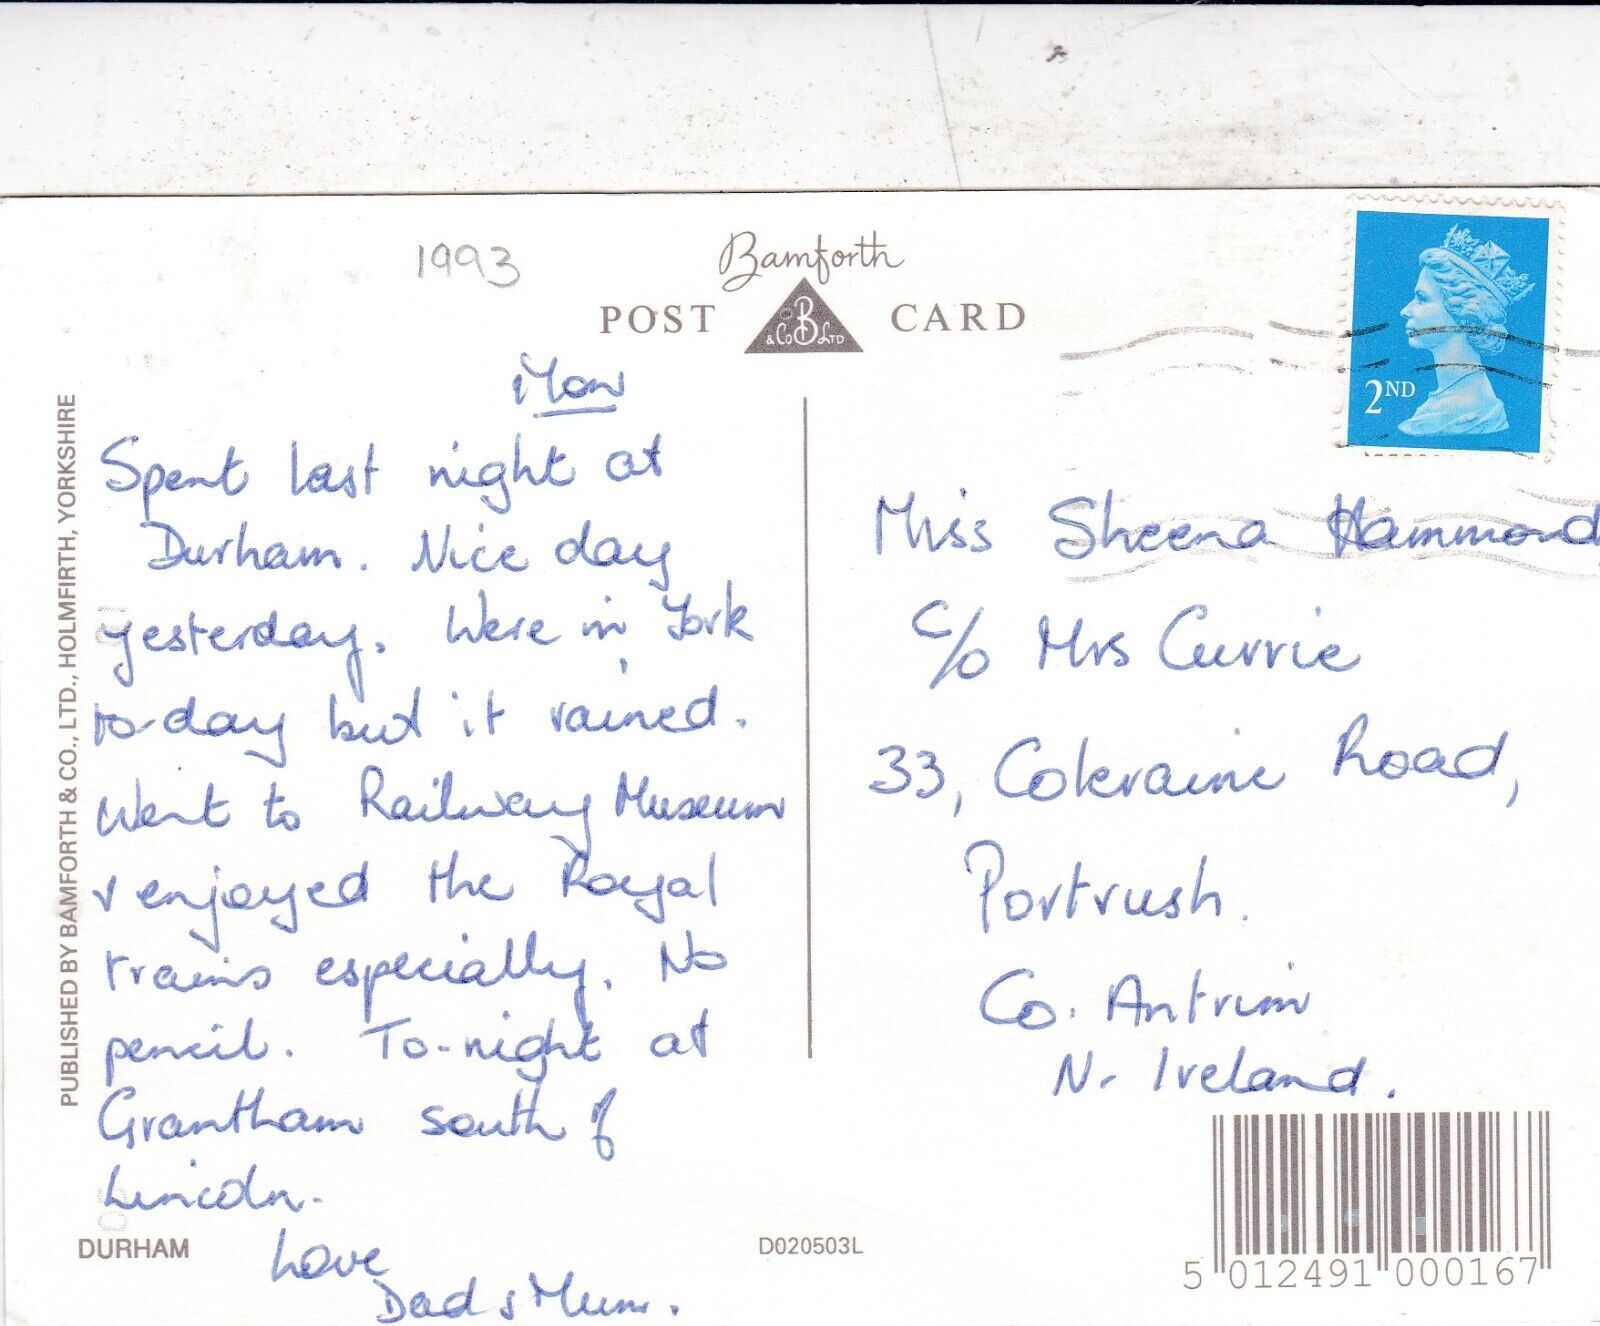 1993
Bamforth
POST CARD
B
& Co LTD
2ND
PUBLISHED BY BAMFORTH & CO., LTD., HOLMFIRTH, YORKSHIRE
Mon
Spent last night at
Durham. Nice day
yesterday. Were in York
to-day but it rained.
Went to Railway Museum
& enjoyed the Royal
trains especially. No
pencil. To-night at
Grantham south of
Lincoln.
Love
Dad & Mum.
Miss Sheena Hammond,
c/o Mrs Currie
33, Coleraine Road,
Portrush.
Co. Antrim
N. Ireland.
DURHAM
D020503L
5 012491 000167